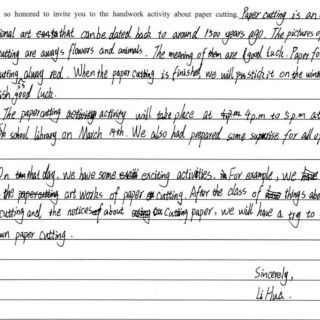 so honored to invite you to the handwork activity about paper cutting. Paper cutting is an
ional art that can be dated back to around 1500 years ago. The pictures of
cutting are always flowers and animals. The meaning of them are good luck. Paper for
cutting alway red. When the paper cutting is finished, we will stick it on the win
sh good luck.
The paper cutting activity will take place at 4 p.m to 5 p.m at
school library on March 14th. We also had prepared some suprise for all of
On that day, we have some exciting activities. For example, we
the art works of paper cutting. After the class of things abo
cutting and the notices about cutting paper, we will have a try to
own paper cutting.
Sincerely,
Li Hua